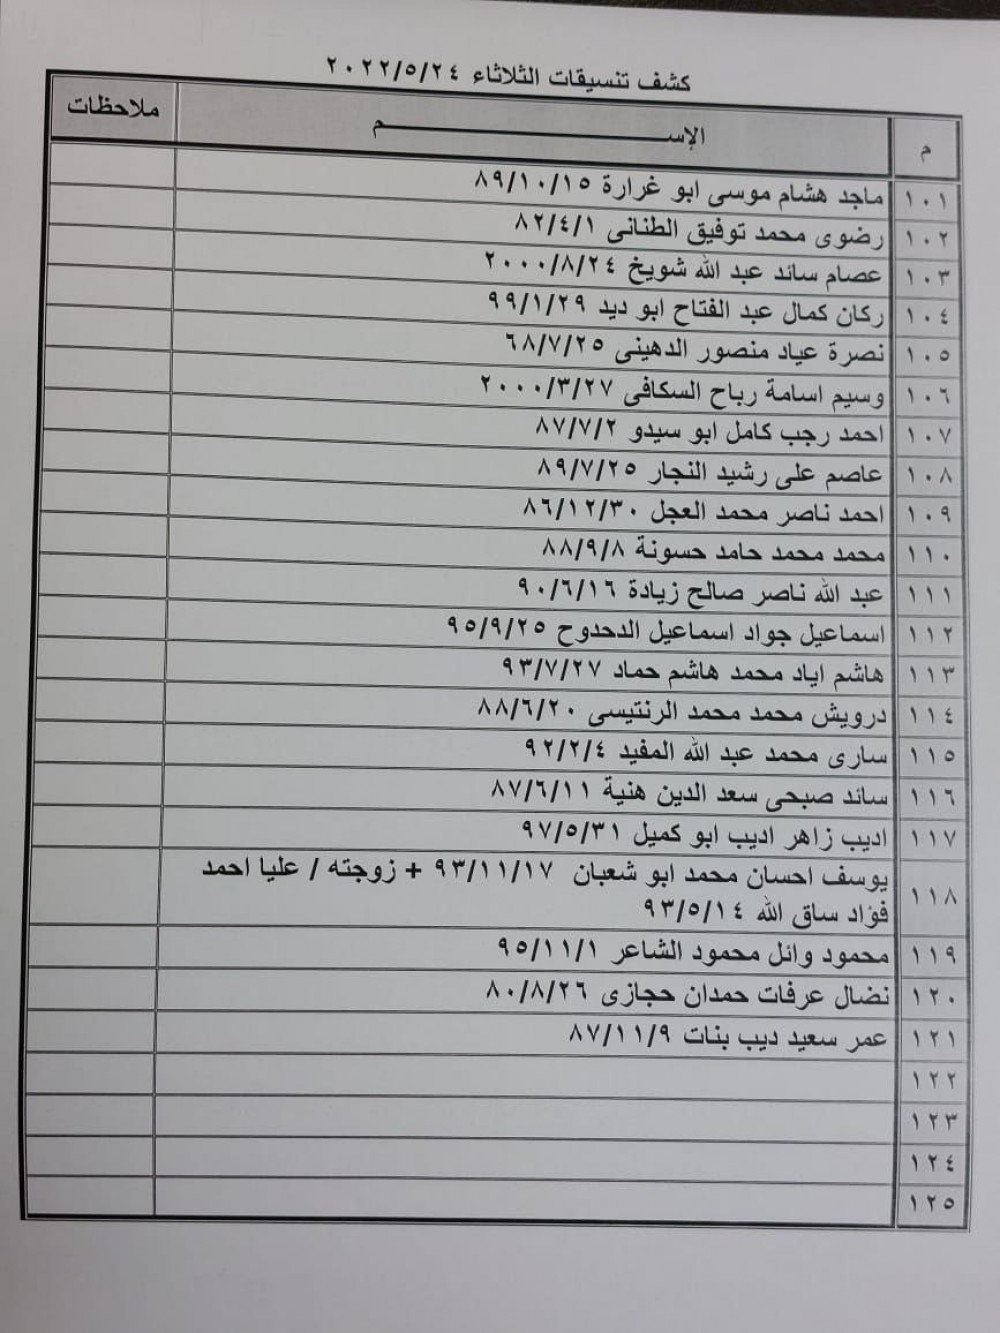 كشف تنسيقات الثلاثاء ٢٠٢٢/٥/٢٤
م الإســـــــــــــــم ملاحظات
١٠١ ماجد هشام موسى ابو غرارة ٨٩/١٠/١٥
١٠٢ رضوى محمد توفيق الطنانى ٨٢/٤/١
١٠٣ عصام سائد عبد الله شويخ ٢٠٠٠/٨/٢٤
١٠٤ ركان كمال عبد الفتاح ابو ديد ٩٩/١/٢٩
١٠٥ نصرة عياد منصور الدهينى ٦٨/٧/٢٥
١٠٦ وسيم اسامة رباح السكافى ٢٠٠٠/٣/٢٧
١٠٧ احمد رجب كامل ابو سيدو ٨٧/٧/٢
١٠٨ عاصم على رشيد النجار ٨٩/٧/٢٥
١٠٩ احمد ناصر محمد العجل ٨٦/١٢/٣٠
١١٠ محمد محمد حامد حسونة ٨٨/٩/٨
١١١ عبد الله ناصر صالح زيادة ٩٠/٦/١٦
١١٢ اسماعيل جواد اسماعيل الدحدوح ٩٥/٩/٢٥
١١٣ هاشم اياد محمد هاشم حماد ٩٣/٧/٢٧
١١٤ درويش محمد محمد الرنتيسى ٨٨/٦/٢٠
١١٥ سارى محمد عبد الله المفيد ٩٢/٢/٤
١١٦ سائد صبحى سعد الدين هنية ٨٧/٦/١١
١١٧ اديب زاهر اديب ابو كميل ٩٧/٥/٣١
١١٨ يوسف احسان محمد ابو شعبان ٩٣/١١/١٧ + زوجته / عليا احمد
فؤاد ساق الله ٩٣/٥/١٤
١١٩ محمود وائل محمود الشاعر ٩٥/١١/١
١٢٠ نضال عرفات حمدان حجازى ٨٠/٨/٢٦
١٢١ عمر سعيد ديب بنات ٨٧/١١/٩
١٢٢
١٢٣
١٢٤
١٢٥